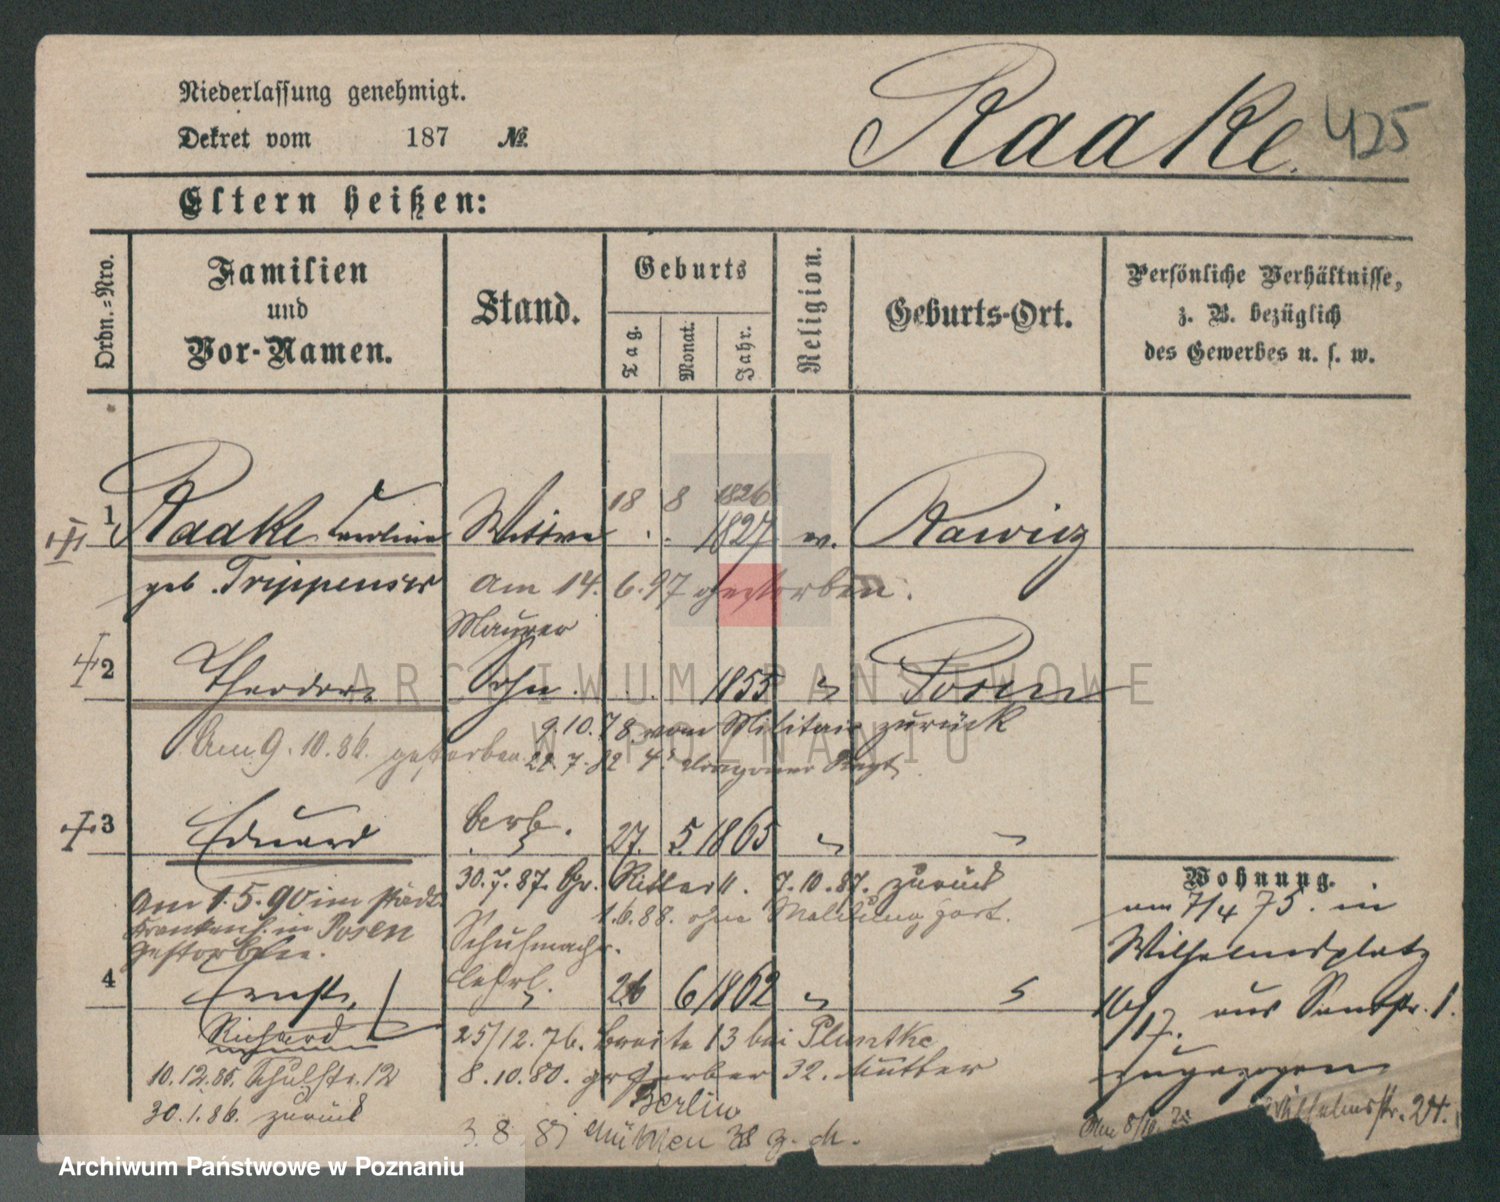 Niederlassung genehmigt.
Dekret vom 187 №.
Raake. 425
Eltern heißen:
Ordn.=Nro.
Familien
und
Vor-Namen.
Stand.
Geburts
Tag.
Monat.
Jahr.
Religion.
Geburts-Ort.
Persönliche Verhältnisse,
z. B. bezüglich
des Gewerbes u. s. w.
18 8 1826
1 Raake Caroline Wittwe 1827 ev. Rawicz
geb. Trippensee am 14. 6. 97 gestorben.
Maurer
2 Theodor Sohn. 1855 " Posen
9.10.78. vom Militair zurück
Am 9.10.86. gestorben 22.7.82 4. Dragoner Regt.
3 Eduard 27. 5. 1865 " "
30.7.87. Gr. Ritter 11. 7.10.87. zurück
Am 1.5.90 im städt. 1.6.88. ohne Meldung fort.
Krankenh. in Posen
gestorben.
Schuhmachr.
4 Ernst, Lehrl. 26 6 1862 "
Richard
25/12.76. Breite 13 bei
10.12.85. Schulstr. 12 8.10.80. Gerber 32. Mutter
30.1.86. zurück
Berlin
3.8.81 Mühlen 38 z. M.
Wohnung.
am 7/4 75. in
Wilhelmsplatz
16/17. aus Sandstr. 1.
zugezogen
Wilhelmstr. 24.
ARCHIWUM PAŃSTWOWE
W POZNANIU
Archiwum Państwowe w Poznaniu